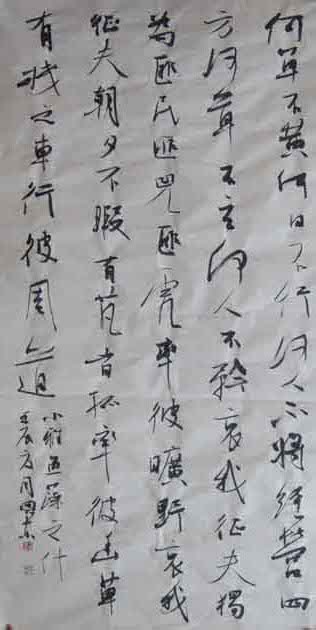 何草不黄何日不行何人不將經營四
方何草不玄何人不矜哀我征夫獨
為匪民匪兕匪虎率彼曠野哀我
征夫朝夕不暇有芃者狐率彼幽草
有棧之車行彼周道
小雅藻之什
壬辰月